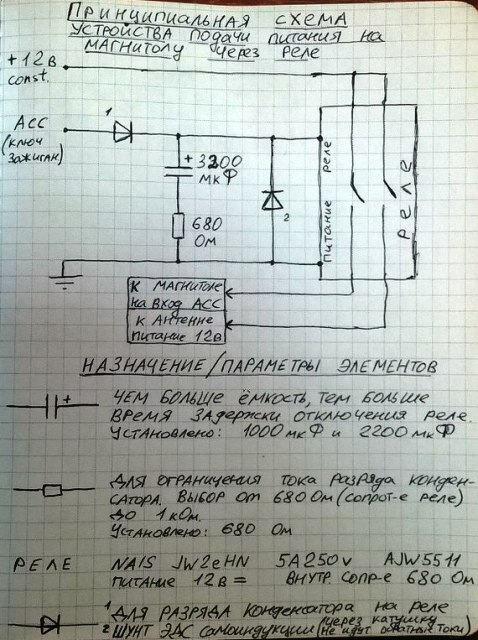 Принципиальная схема
устройства подачи питания на
магнитолу через реле
+12в
const.
1
АСС
(ключ
зажиган)
+ 3200
мкФ
680
Ом
2
питание реле
реле
к магнитоле
на вход АСС
к Антенне
питание 12в
Назначение/параметры элементов
+
Чем больше ёмкость, тем больше
время задержки отключения реле.
Установлено: 1000 мкФ и 2200 мкФ
Для ограничения тока разряда конден-
сатора. Выбор от 680 Ом (сопрот-е реле)
до 1 кОм.
Установлено: 680 Ом
Реле NAIS JW2eHN 5A250v AJW5511
питание 12в = внутр. сопр-е 680 Ом
1 Для разряда конденсатора на реле
через катушку
2 Шунт ЭДС самоиндукции (не идут обратные токи)